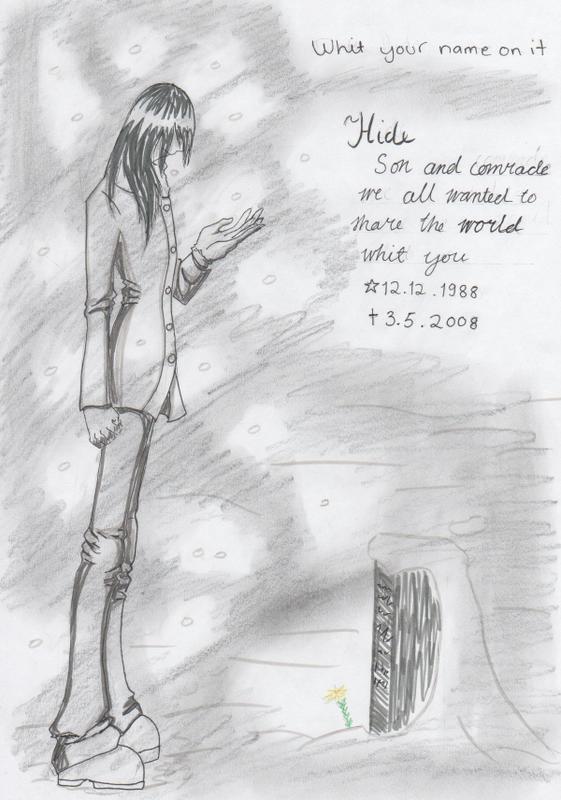 Whit your name on it
Hide
Son and comrade
we all wanted to
share the world
whit you
☆12.12.1988
†3.5.2008